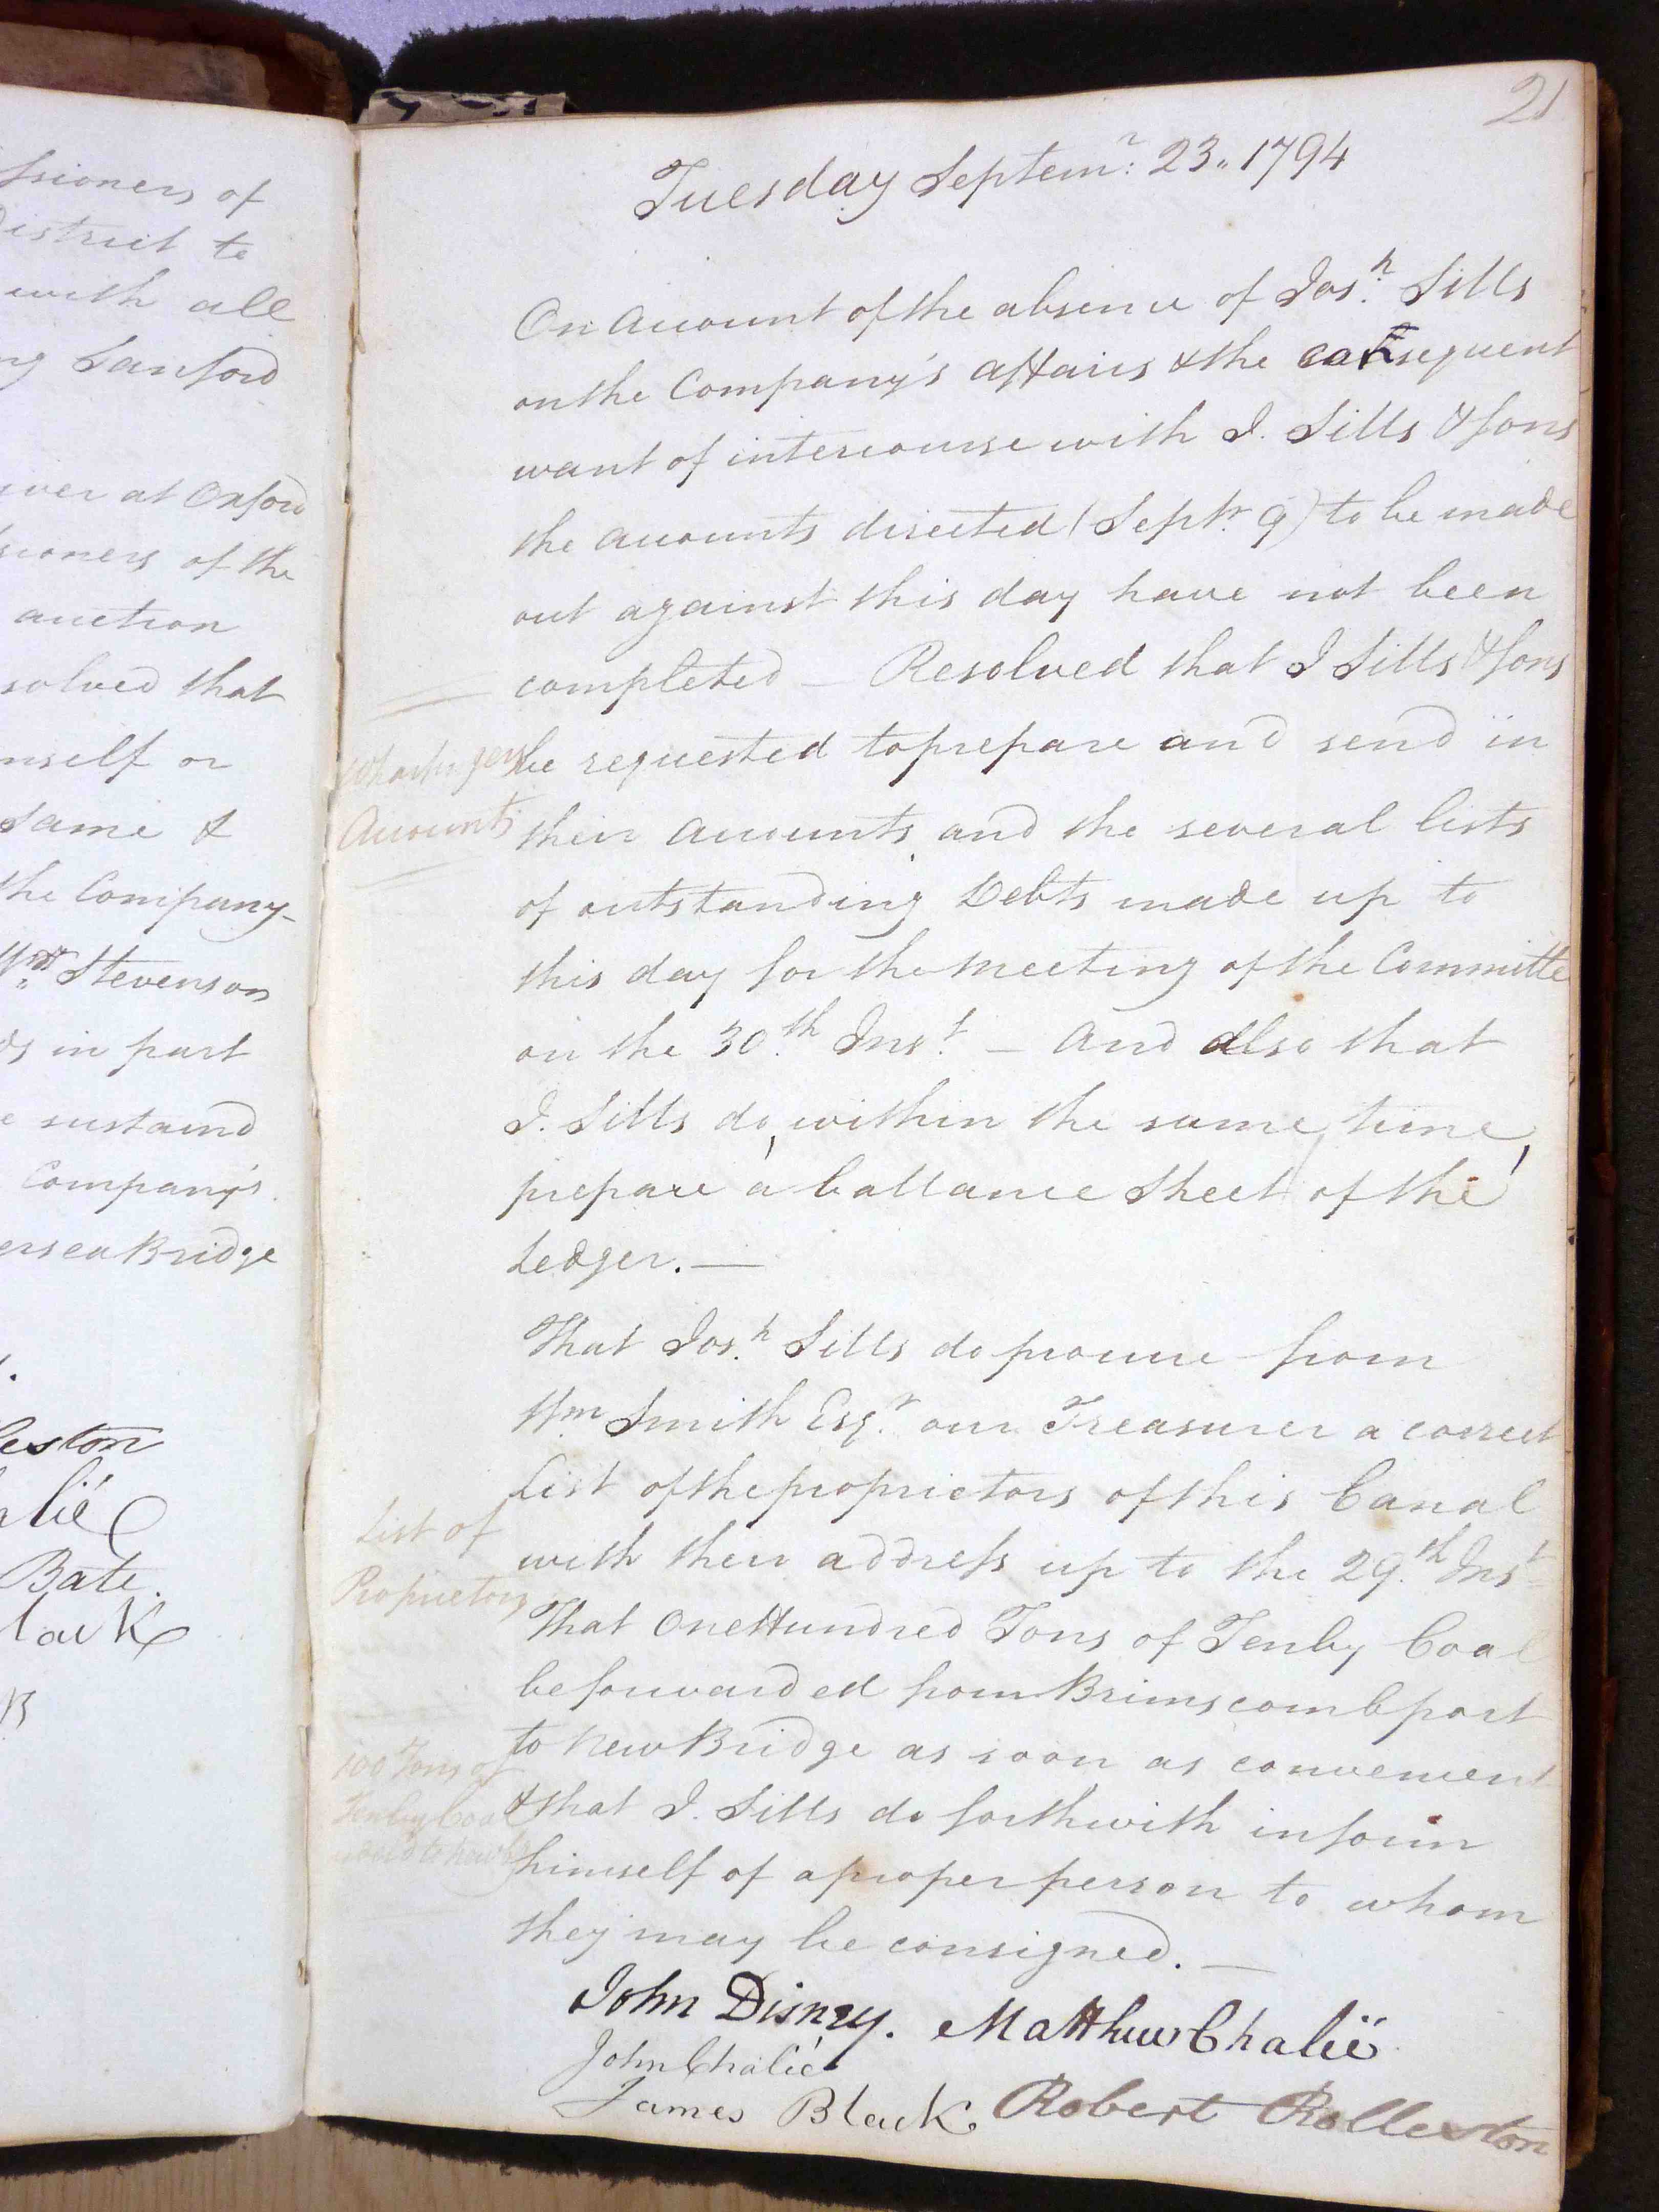 ssioners of
District to
with all
ng Sanford
swer at Oxford
ssioners of the
auction
solved that
mself or
same &
the Company
Wm Stevenson
ds in part
e sustaind
Company's
ersea Bridge
leston
alié
Bate.
lack
21
Tuesday Septemr: 23. 1794
On Account of the absence of Josh. Sills
on the Company's affairs & the consequent
want of intercourse with J. Sills & Sons
the accounts directed (Septr. 9) to be made
out against this day have not been
completed — Resolved that J Sills & Sons
Wharfingers
be requested to prepare and send in
Accounts
their Accounts, and the several lists
of outstanding Debts made up to
this day for the meeting of the Committe
on the 30.th Inst. — And also that
J. Sills do, within the same time,
prepare a ballance Sheet of the
Ledger. —
That Josh. Sills do procure from
Wm. Smith Esqr. our Treasurer a correct
List of the proprietors of this Canal
List of
Proprietors
with their address up to the 29.th Inst
That One Hundred Tons of Tenby Coal
be forwarded from Brimscomb port
to New Bridge as soon as convenient
100 Tons of
Tenby Coal
& that J. Sills do forthwith inform
himself of a proper person to whom
they may be consigned. —
John Disney. Matthew Chalié
John Chalié
James Black Robert Rolleston